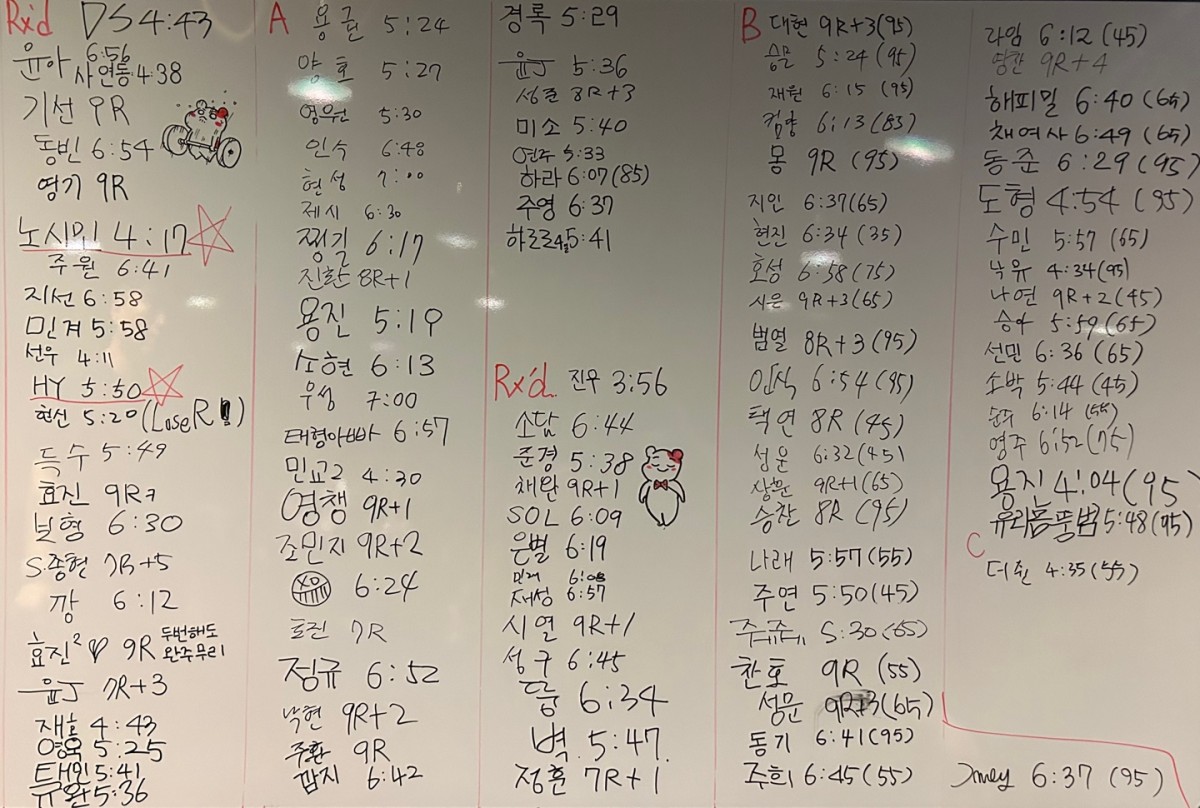 Rx'd DS 4:43
윤아 6:56
사연동 4:38
기선 9R
동빈 6:54
영기 9R
노시민 4:17
주원 6:41
지선 6:58
민겨 5:58
선우 4:11
HY 5:50
현신 5:20 (Lose R!)
득수 5:49
효진 9R
보형 6:30
S.종현 7R+5
깡 6:12
효진² ♡ 9R 두번해도
완주무리
윤J 7R+3
재호 4:43
영욱 5:25
태민 5:41
유완 5:36
A 용권 5:24
양호 5:27
영원 5:30
인숙 6:48
현성 7:00
제시 6:30
찡길 6:17
진환 8R+1
용진 5:19
소현 6:13
우성 7:00
태형아빠 6:57
민교2 4:30
영챙 9R+1
조민지 9R+2
6:24
효진 7R
정규 6:52
낙현 9R+2
주환 9R
깜지 6:42
경록 5:29
윤J 5:36
성준 8R+3
미소 5:40
연주 5:33
하라 6:07(85)
주영 6:37
5:41
Rx'd. 진우 3:56
소담 6:44
준경 5:38
채완 9R+1
SOL 6:09
은별 6:19
민재 6:08
재성 6:57
시열 9R+1
성구 6:45
뚱 6:34
벽 5:47
정훈 7R+1
B 대현 9R+3(95)
승문 5:24 (95)
재원 6:15 (95)
컴향 6:13(83)
몽 9R (95)
지인 6:37(65)
현진 6:34 (35)
호성 6:58(75)
시은 9R+3(65)
범열 8R+3(95)
인식 6:54(95)
택연 8R (45)
성운 6:32(45)
상문 9R+1(65)
승찬 8R (95)
나래 5:57(55)
주연 5:50(45)
5:30 (65)
찬호 9R (55)
성문 9R+3(65)
동기 6:41(95)
주희 6:45(55)
라임 6:12 (45)
당찬 9R+4
해피밀 6:40 (65)
채여사 6:49 (65)
동준 6:29 (95)
도형 4:54 (95)
수민 5:57 (65)
낙유 4:34(95)
나연 9R+2(45)
승아 5:59(65)
선민 6:36 (65)
소박 5:44 (45)
순주 6:14 (55)
영주 6:52(75)
용진 4:04(95
5:48(95)
C
더훤 4:35(55)
Jmey 6:37 (95)